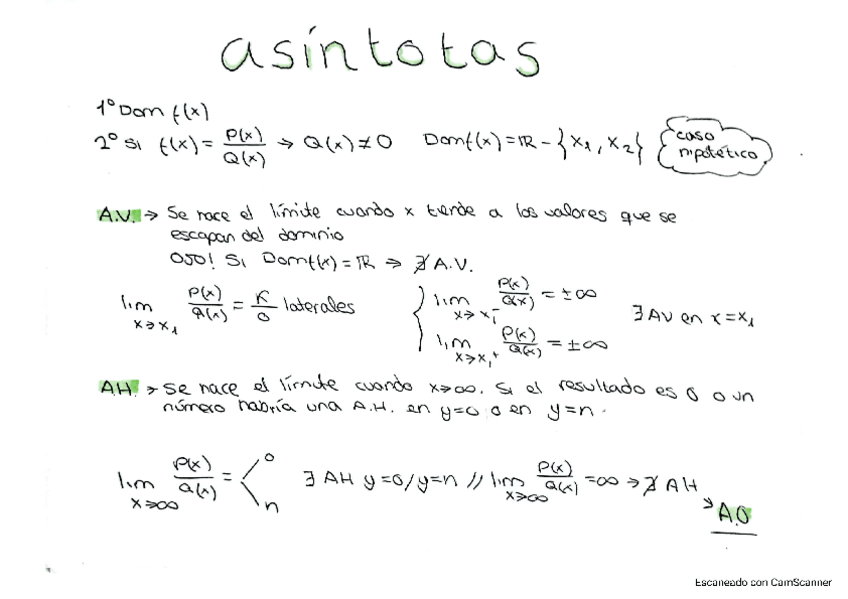 asíntotas
1º Dom f(x)
2º Si f(x) = P(x)/Q(x) → Q(x) ≠ 0 Dom f(x) = ℝ - {x₁, x₂} caso hipotético
A.V. → Se hace el límite cuando x tiende a los valores que se
escapan del dominio
OJO! Si Dom f(x) = ℝ → ∄ A.V.
lim x→x₁ P(x)/Q(x) = K/0 laterales { lim x→x₁⁻ P(x)/Q(x) = ±∞
lim x→x₁⁺ P(x)/Q(x) = ±∞ ∃ AV en x = x₁
AH. → Se hace el límite cuando x→∞. Si el resultado es 0 o un
número habría una A.H. en y=0 o en y=n.
lim x→∞ P(x)/Q(x) = < 0 n ∃ AH y=0/y=n // lim x→∞ P(x)/Q(x) = ∞ → ∄ AH
↘ A.O
Escaneado con CamScanner